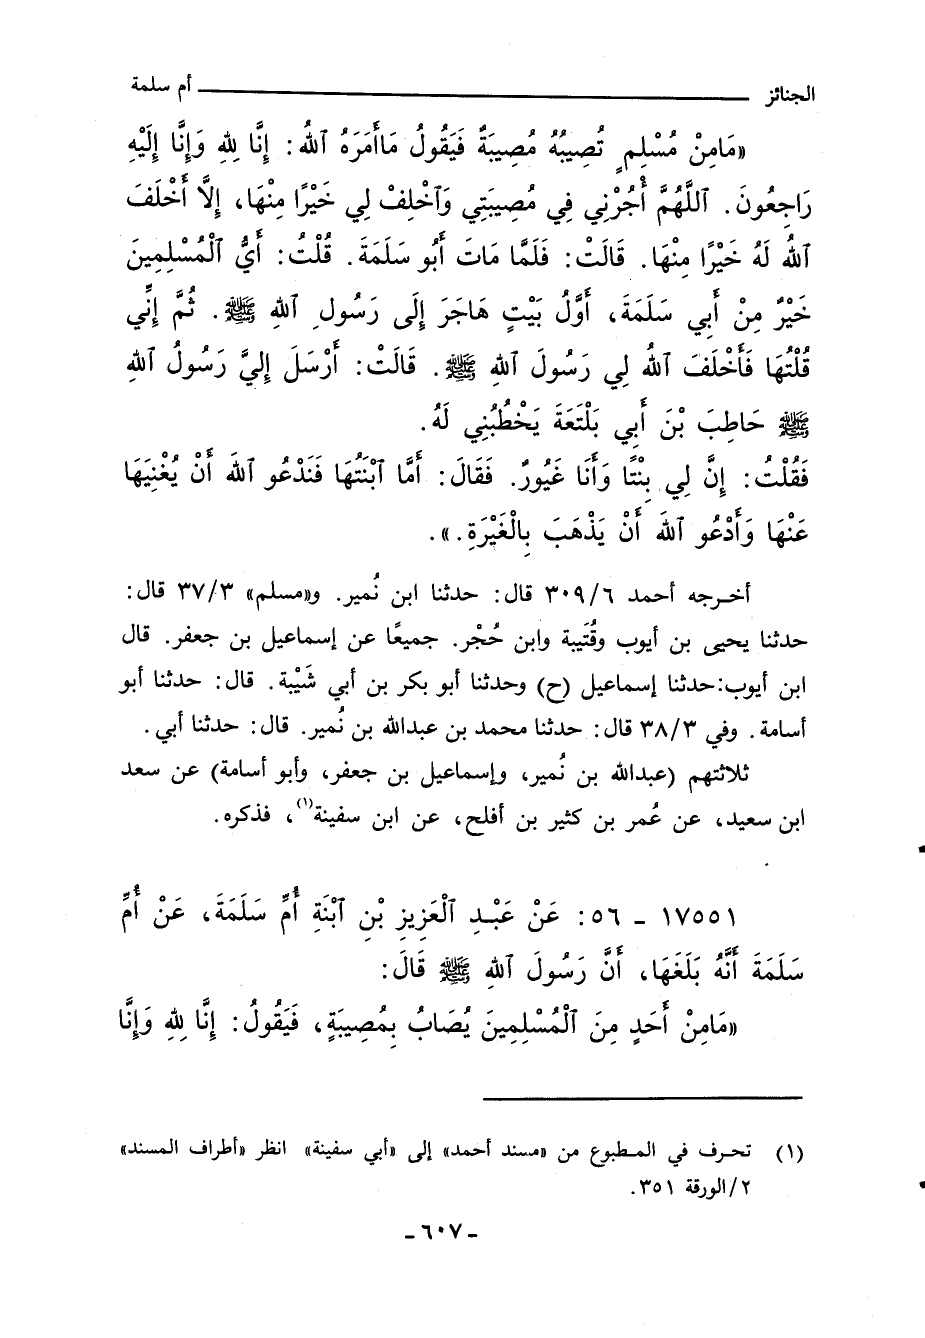 الجنائز ــــــــــ أم سلمة
«مَامِنْ مُسْلِمٍ تُصِيبُهُ مُصِيبَةٌ فَيَقُولُ مَاأَمَرَهُ ٱللهُ: إِنَّا لِلهِ وَإِنَّا إِلَيْهِ
رَاجِعُونَ. ٱللَّهُمَّ أْجُرْنِي فِي مُصِيبَتِي وَٱخْلِفْ لِي خَيْرًا مِنْهَا، إِلَّا أَخْلَفَ
ٱللهُ لَهُ خَيْرًا مِنْهَا. قَالَتْ: فَلَمَّا مَاتَ أَبُو سَلَمَةَ. قُلْتُ: أَيُّ ٱلْمُسْلِمِينَ
خَيْرٌ مِنْ أَبِي سَلَمَةَ، أَوَّلُ بَيْتٍ هَاجَرَ إِلَى رَسُولِ ٱللهِ ﷺ. ثُمَّ إِنِّي
قُلْتُهَا فَأَخْلَفَ ٱللهُ لِي رَسُولَ ٱللهِ ﷺ. قَالَتْ: أَرْسَلَ إِلَيَّ رَسُولُ ٱللهِ
ﷺ حَاطِبَ بْنَ أَبِي بَلْتَعَةَ يَخْطُبُنِي لَهُ.
فَقُلْتُ: إِنَّ لِي بِنْتًا وَأَنَا غَيُورٌ. فَقَالَ: أَمَّا ٱبْنَتُهَا فَنَدْعُو ٱللهَ أَنْ يُغْنِيَهَا
عَنْهَا وَأَدْعُو ٱللهَ أَنْ يَذْهَبَ بِالْغَيْرَةِ.».
أخرجه أحمد ٣٠٩/٦ قال: حدثنا ابن نُمير. و«مسلم» ٣٧/٣ قال:
حدثنا يحيى بن أيوب وقُتَيبة وابن حُجْر. جميعًا عن إسماعيل بن جعفر. قال
ابن أيوب:حدثنا إسماعيل (ح) وحدثنا أبو بكر بن أبي شَيْبة. قال: حدثنا أبو
أسامة. وفي ٣٨/٣ قال: حدثنا محمد بن عبدالله بن نُمير. قال: حدثنا أبي.
ثلاثتهم (عبدالله بن نُمير، وإسماعيل بن جعفر، وأبو أسامة) عن سعد
ابن سعيد، عن عُمر بن كثير بن أفلح، عن ابن سفينة(١)، فذكره.
١٧٥٥١ - ٥٦: عَنْ عَبْدِ ٱلْعَزِيزِ بْنِ ٱبْنَةِ أُمِّ سَلَمَةَ، عَنْ أُمِّ
سَلَمَةَ أَنَّهُ بَلَغَهَا، أَنَّ رَسُولَ ٱللهِ ﷺ قَالَ:
«مَامِنْ أَحَدٍ مِنَ ٱلْمُسْلِمِينَ يُصَابُ بِمُصِيبَةٍ، فَيَقُولُ: إِنَّا لِلهِ وَإِنَّا
(١) تحرف في المطبوع من «مسند أحمد» إلى «أبي سفينة» انظر «أطراف المسند»
٢/الورقة ٣٥١.
- ٦٠٧ -